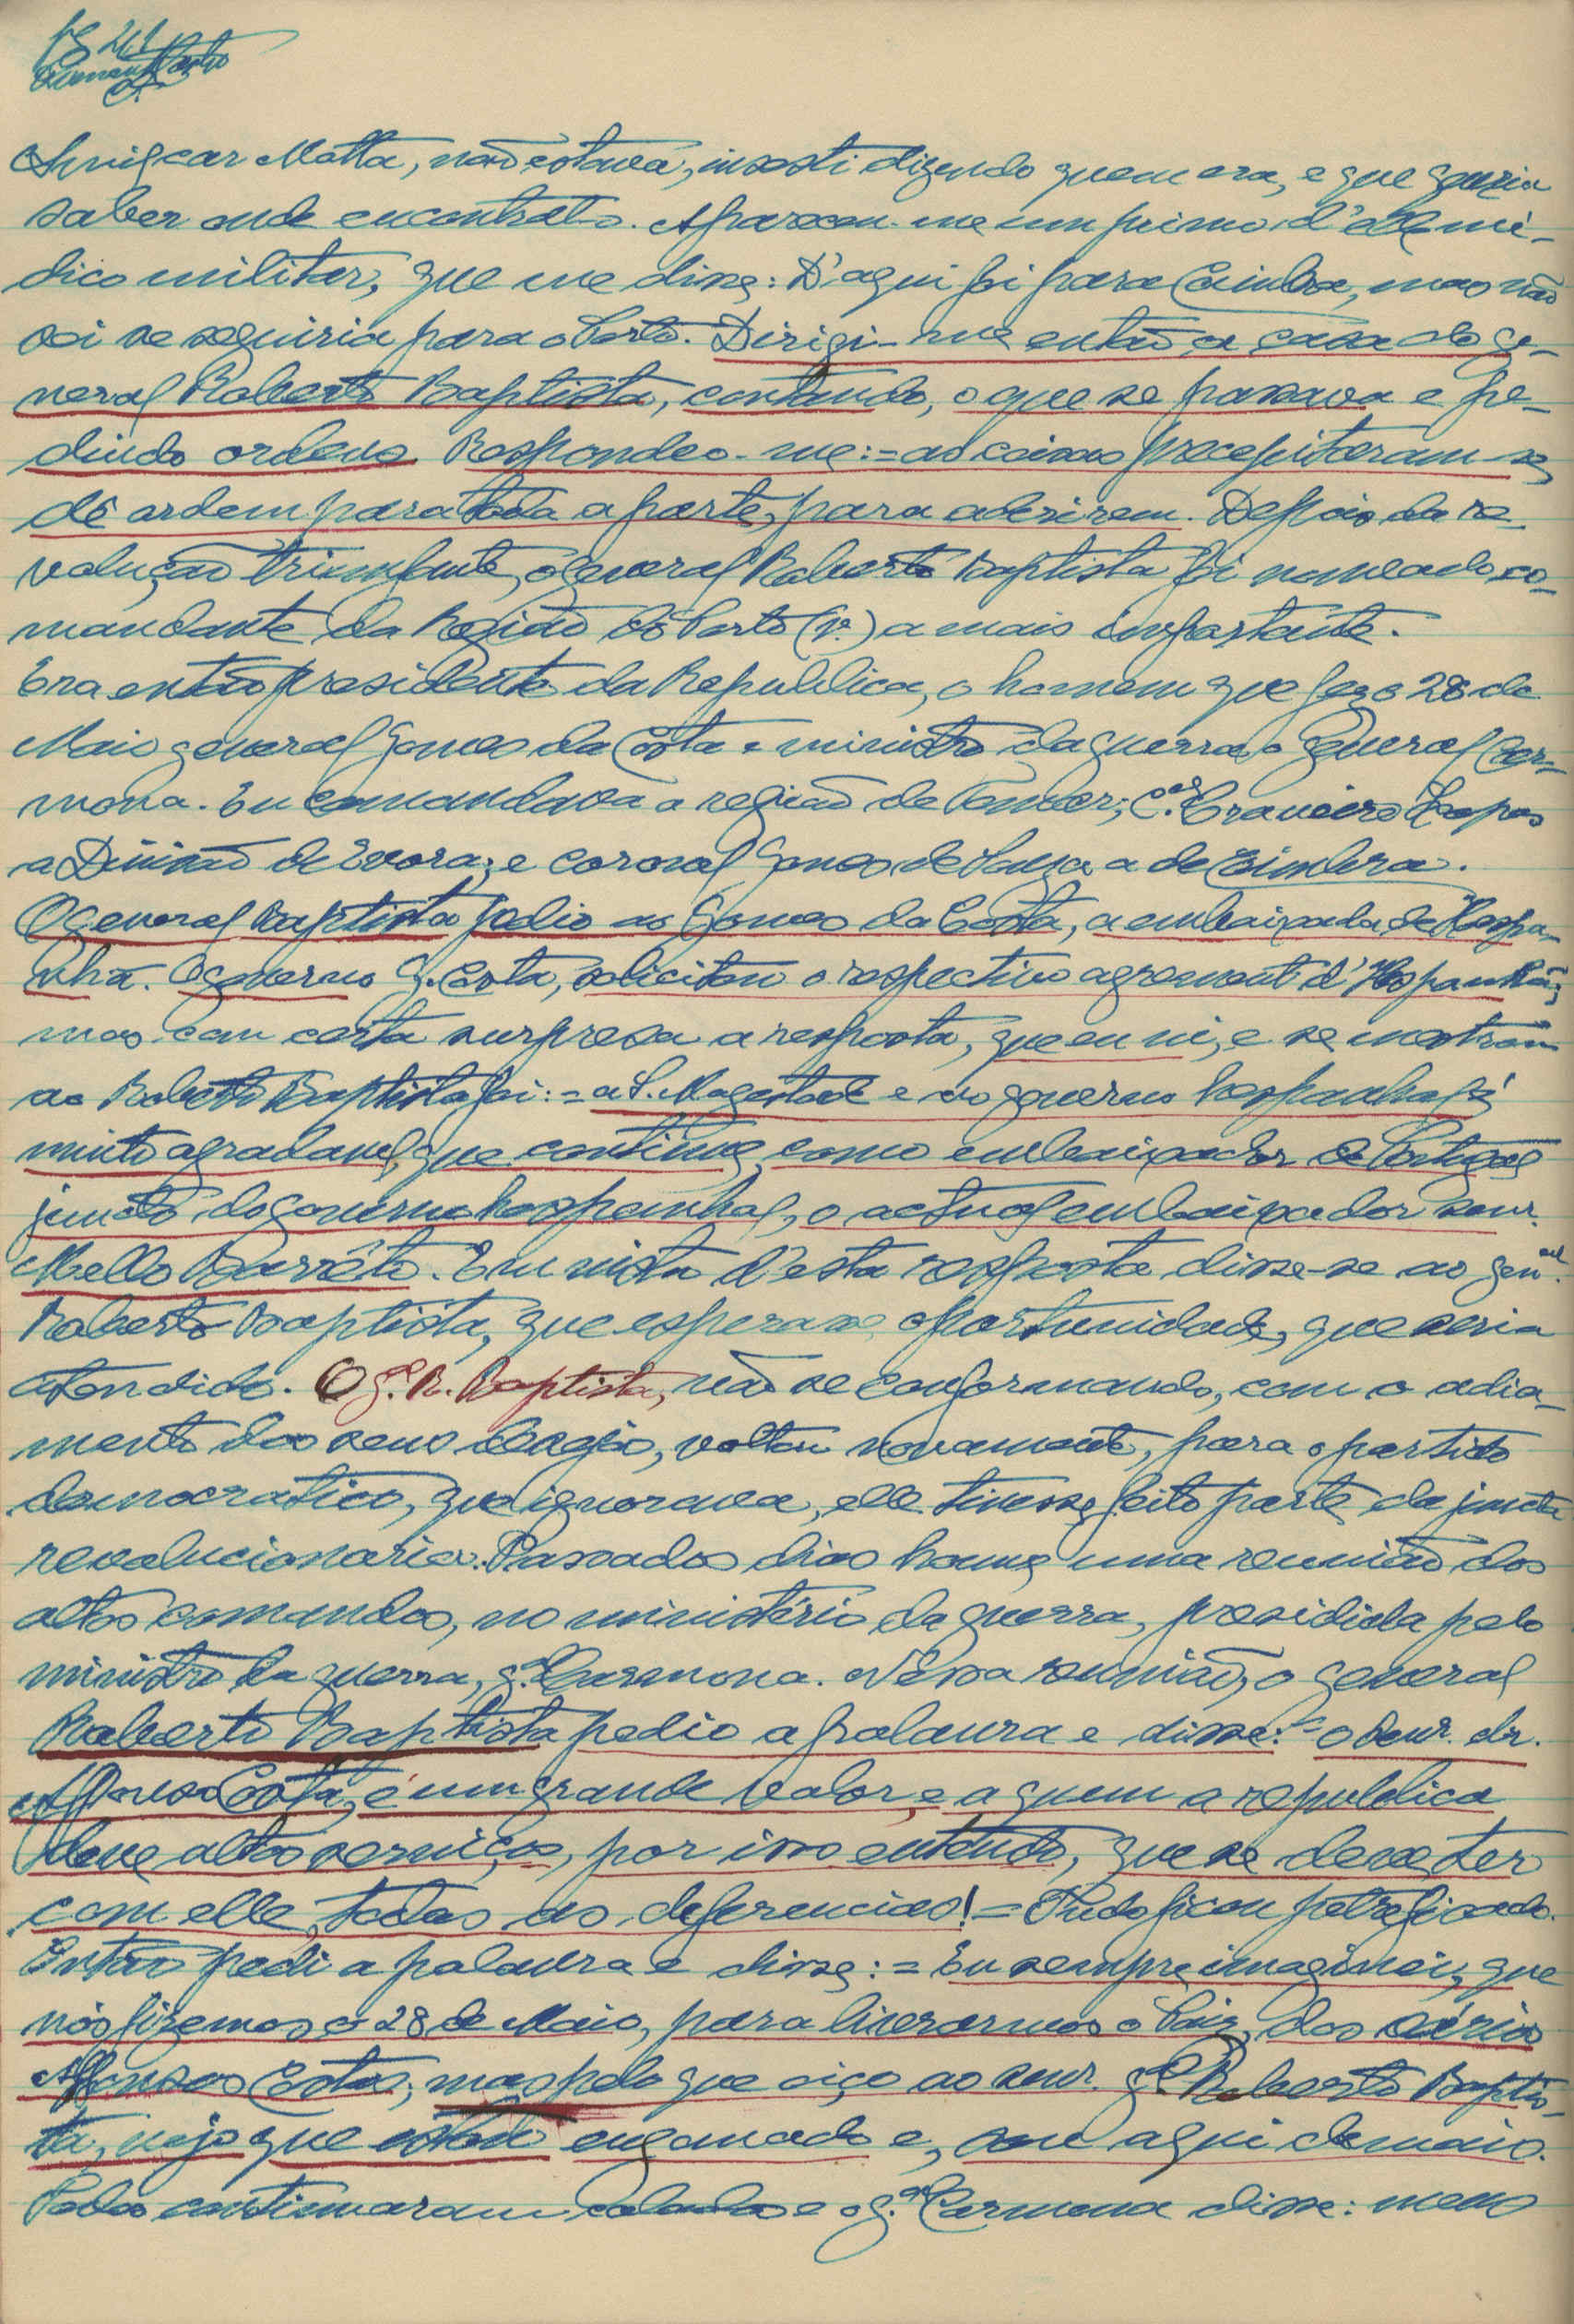 Amilcar Motta, não estava, insisti dizendo quem era, e que queria
saber onde encontral-o. Apareceu-me um primo d'elle mé-
dico militar, que me disse: D'aqui foi para Coimbra, mas não
sei se seguiria para o Porto. Dirigi-me então a casa do ge-
neral Roberto Baptista, contando, o que se passava e pe-
dindo ordens. Respondeo-me:=as coisas precepitaram-se,
dê ordem para toda a parte, para aderirem. Depois da re-
volução triumfante, o general Roberto Baptista foi nomeado co-
mandante da Região do Porto (1ª.) a mais importante.
Era então presidente da Republica, o homem que fez o 28 de
Maio general Gomes da Costa e ministro da guerra o general Car-
mona. Eu comandava a região de Tomar; c.el Craveiro Lopes
a Divisão de Evora; e coronel Gomes de Souza a de Coimbra.
O general Baptista pedio ao Gomes da Costa, a embaixada de Hespa-
nha. O governo G. Costa, solicitou o respectivo agrement d'Hespanha;
mas com certa surpresa a resposta, que eu vi, e se mostrou
ao Roberto Baptista foi:=a S. Magestade e ao governo hespanhol é
muito agradavel, que continue, como embaixador de Portugal
junto do governo hespanhol, o actual embaixador senr.
Mello Barrêto. Em vista d'esta resposta disse-se ao gen.al
Roberto Baptista, que esperasse oportunidade, que seria
atendido. O g.al R. Baptista, não se conformando, com o adia-
mento dos seus desejos, voltou novamente, para o partido
democratico, que ignorava, elle tivesse feito parte da junta
revolucionaria. Passados dias houve uma reunião dos
altos comandos, no ministério da guerra, presidida pelo
ministro da guerra, g.al Carmona. Nessa reunião, o general
Roberto Baptista pedio a palavra e disse:=o senr. dr.
Affonso Costa, é um grande valor, e a quem a republica
deve altos serviços, por isso entendo, que se deve ter
com elle, todas as deferencias!=Tudo ficou petrificado.
Então pedi a palavra e disse:=Eu sempre imaginei, que
nós fizemos o 28 de Maio, para livrarmos o Paiz, dos sérios
Affonsos Costas; mas pelo que oiço ao senr. g.al Roberto Baptis-
ta, vejo que estou enganado e, sou aqui demais.
Todos continuaram calados e o g.al Carmona disse: meus